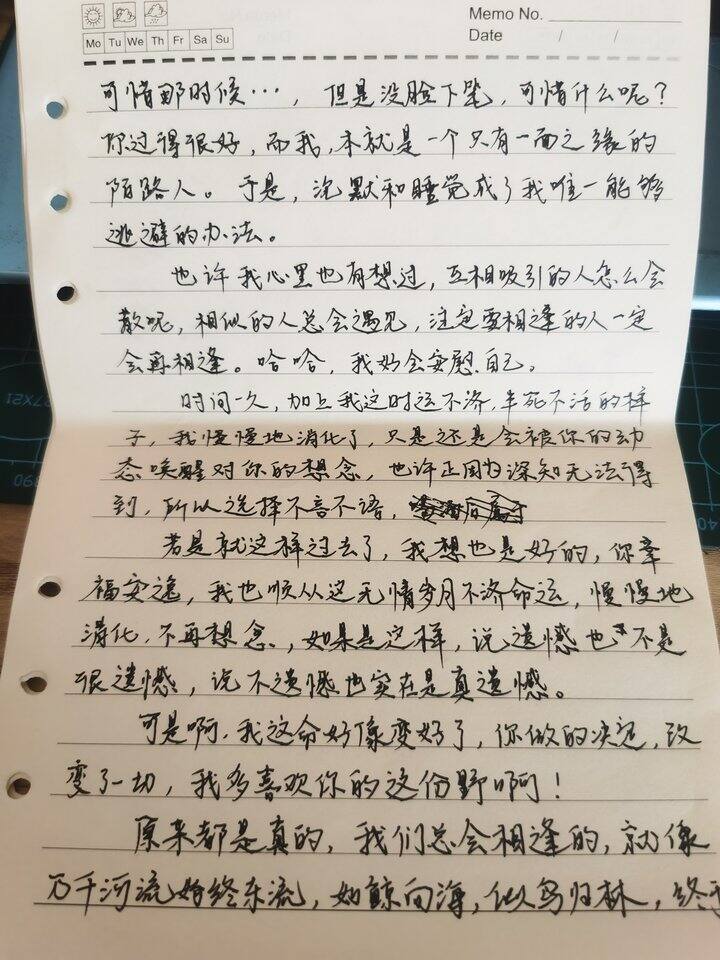 Memo No.
Mo Tu We Th Fr Sa Su
Date / /
可惜那时候…，但是没脸下笔，可惜什么呢？
你过得很好，而我，本就是一个只有一面之缘的
陌路人。于是，沉默和睡觉成了我唯一能够
逃避的办法。
也许我心里也有想过，互相吸引的人怎么会
散呢，相似的人总会遇见，注定要相逢的人一定
会再相逢。哈哈，我好会安慰自己。
时间一久，加上我这时运不济，半死不活的样
子，我慢慢地消化了，只是还是会被你的动
态唤醒对你的想念，也许正因为深知无法得
到，所以选择不言不语，
若是就这样过去了，我想也是好的，你幸
福安逸，我也顺从这无情岁月不济命运，慢慢地
消化，不再想念，如果是这样，说遗憾也不是
很遗憾，说不遗憾也实在是真遗憾。
可是啊，我这命好像变好了，你做的决定，改
变了一切，我多喜欢你的这份野啊！
原来都是真的，我们总会相逢的，就像
万千河流始终东流，如鲸向海，似鸟归林，终于